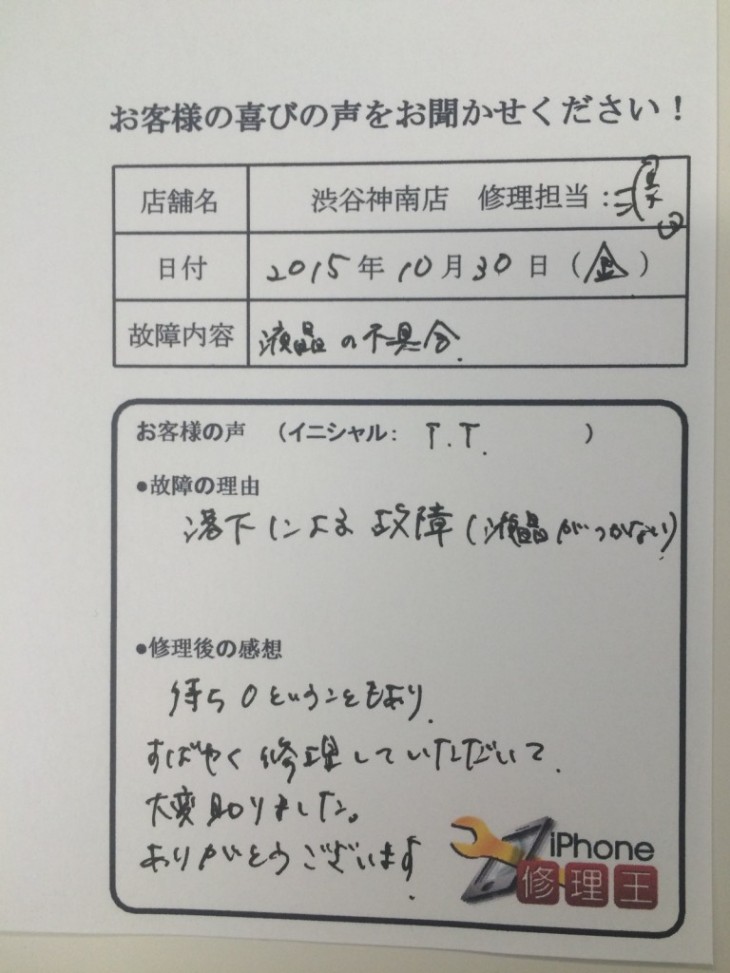 お客様の喜びの声をお聞かせください！
店舗名 渋谷神南店 修理担当：
日付 2015年10月30日（金）
故障内容 液晶の不具合.
お客様の声 （イニシャル： T.T. ）
●故障の理由
落下による故障(液晶がつかない)
●修理後の感想
待ち0ということもあり、
すばやく修理していただいて、
大変助りました。
ありがとうございます.
iPhone
修理王